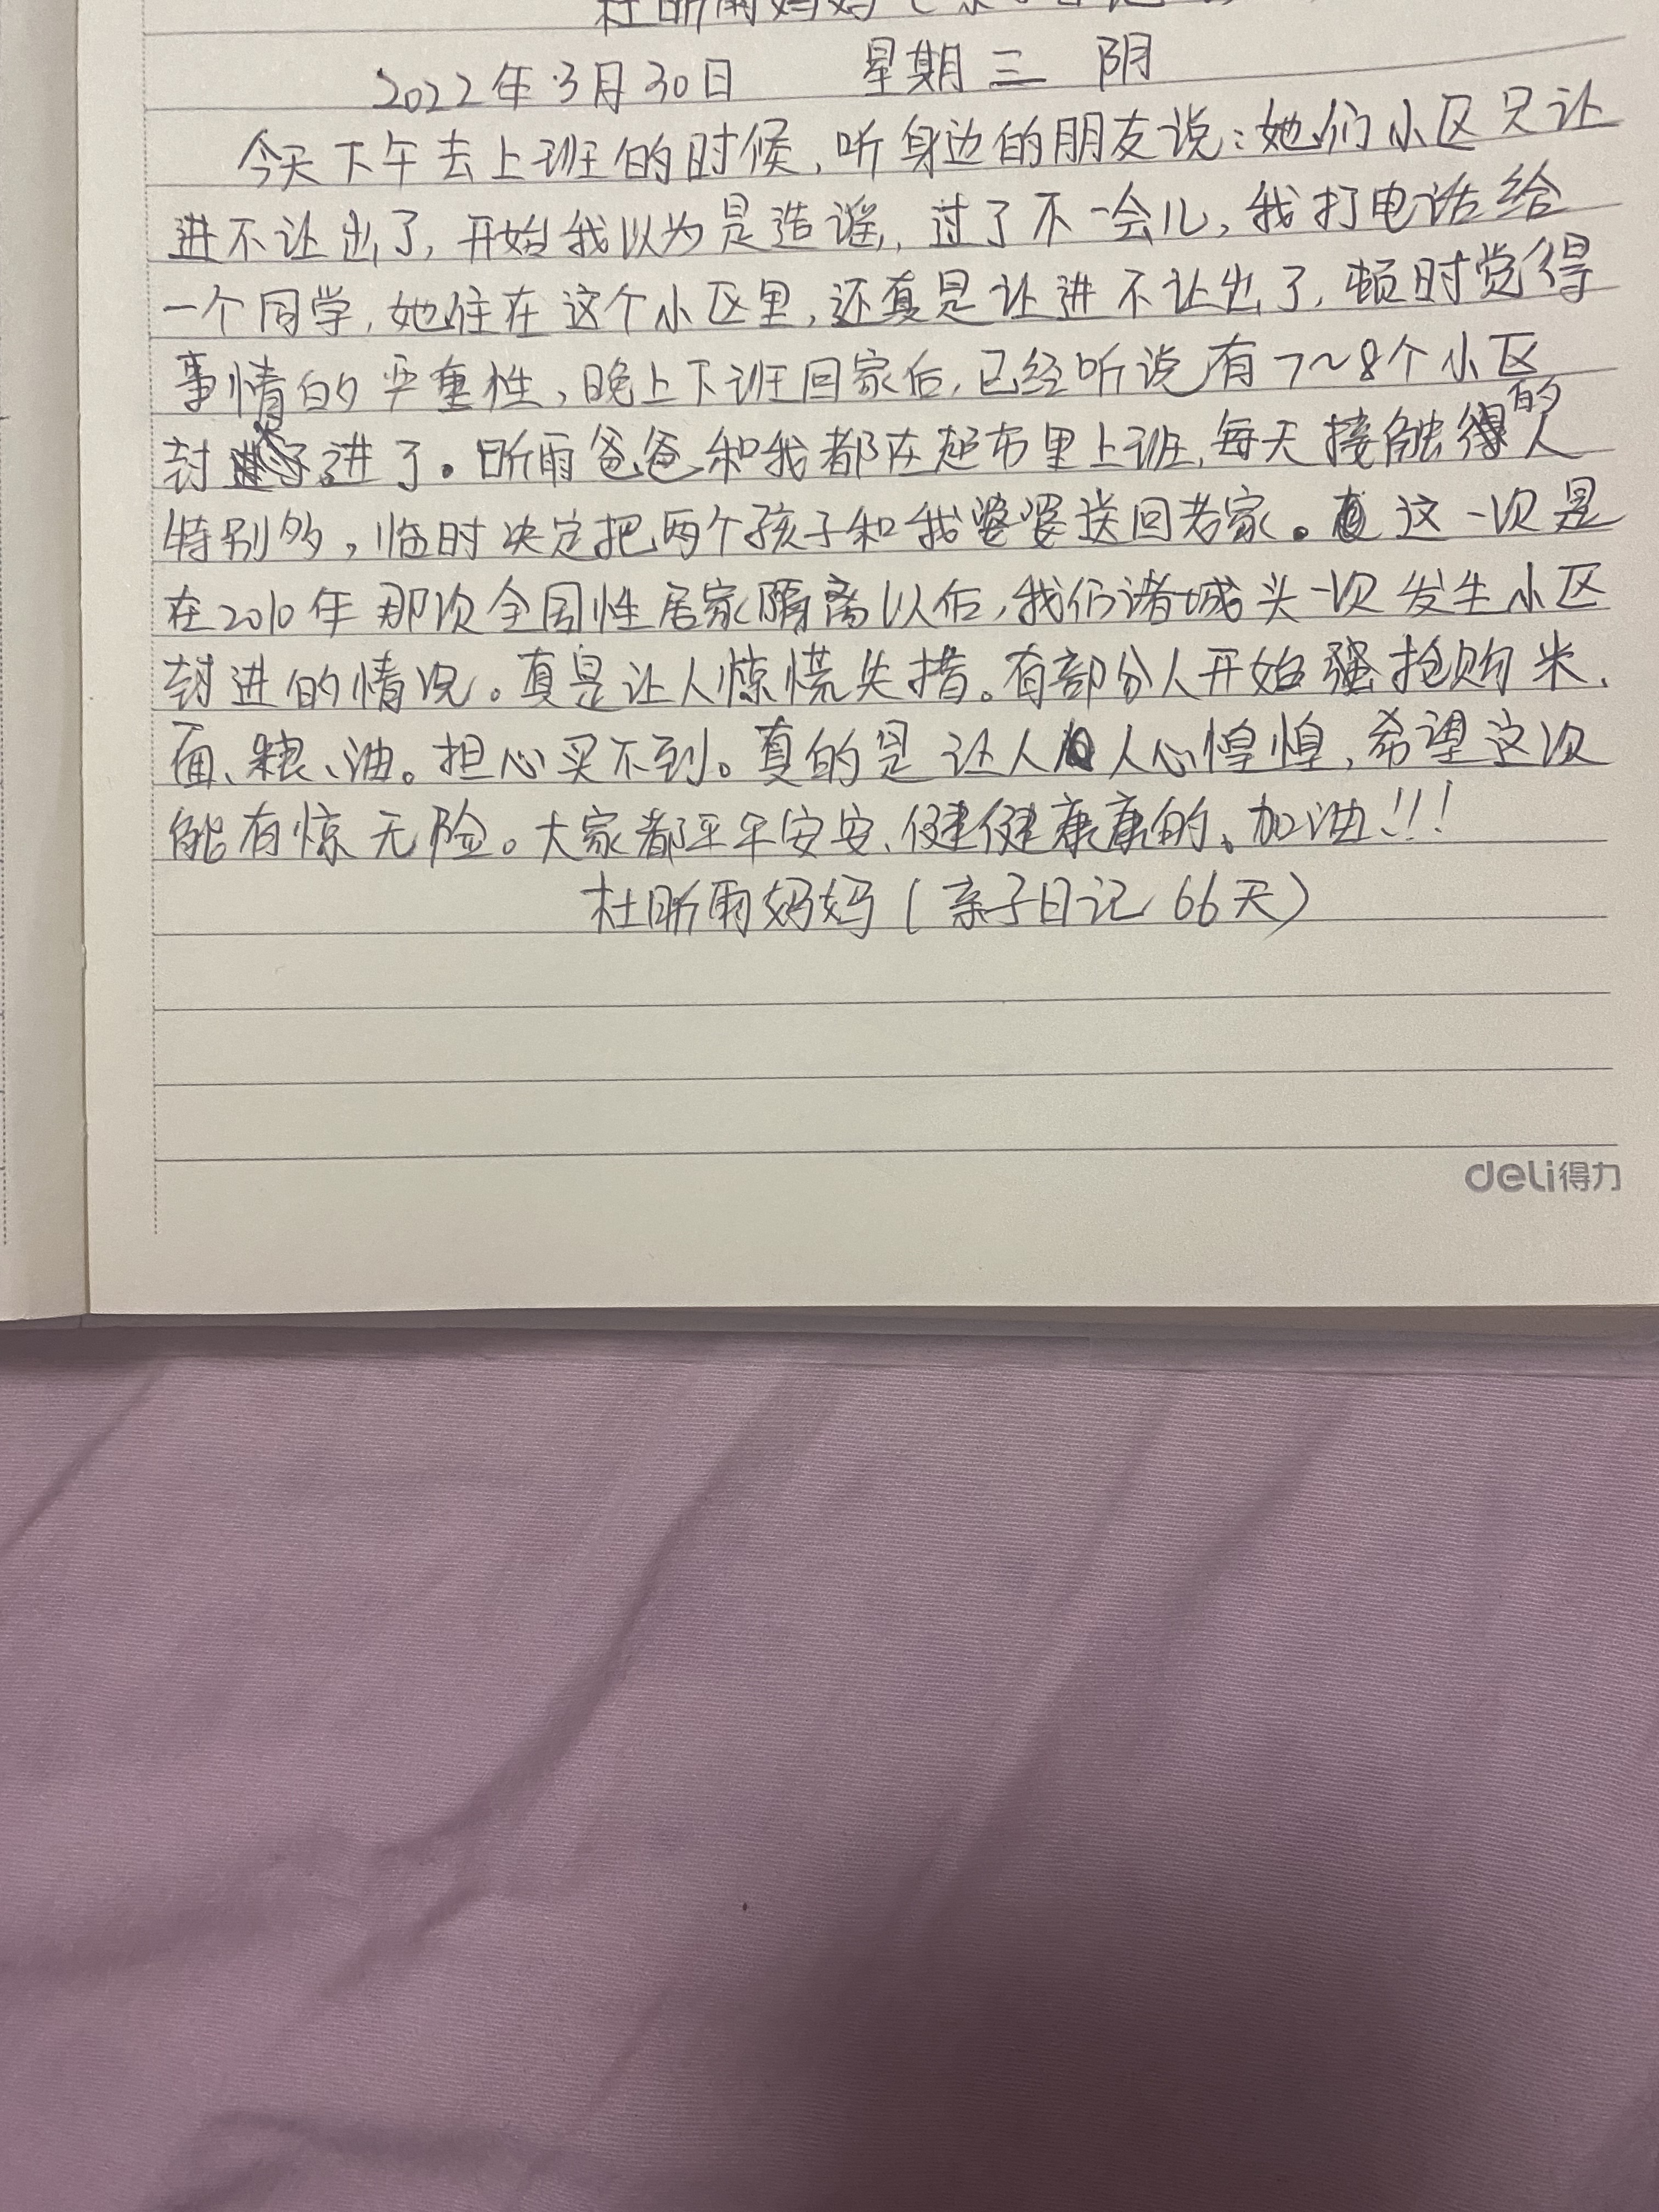 杜昕雨妈妈(亲子日记
2022年3月30日 星期三 阴
今天下午去上班的时候,听身边的朋友说:她们小区只让
进不让出了,开始我以为是造谣,过了不一会儿,我打电话给
一个同学,她住在这个小区里,还真是让进不让出了,顿时觉得
事情的严重性,晚上下班回家后,已经听说有7~8个小区
封进了。昕雨爸爸和我都在超市里上班,每天接触的人
特别多,临时决定把两个孩子和我婆婆送回老家。这一次是
在2010年那次全国性居家隔离以后,我们诸城头一次发生小区
封进的情况。真是让人惊慌失措。有部分人开始抢购米、
面、粮、油。担心买不到。真的是让人人心惶惶,希望这次
能有惊无险。大家都平平安安、健健康康的。加油!!!
杜昕雨妈妈(亲子日记 66天)
deli得力